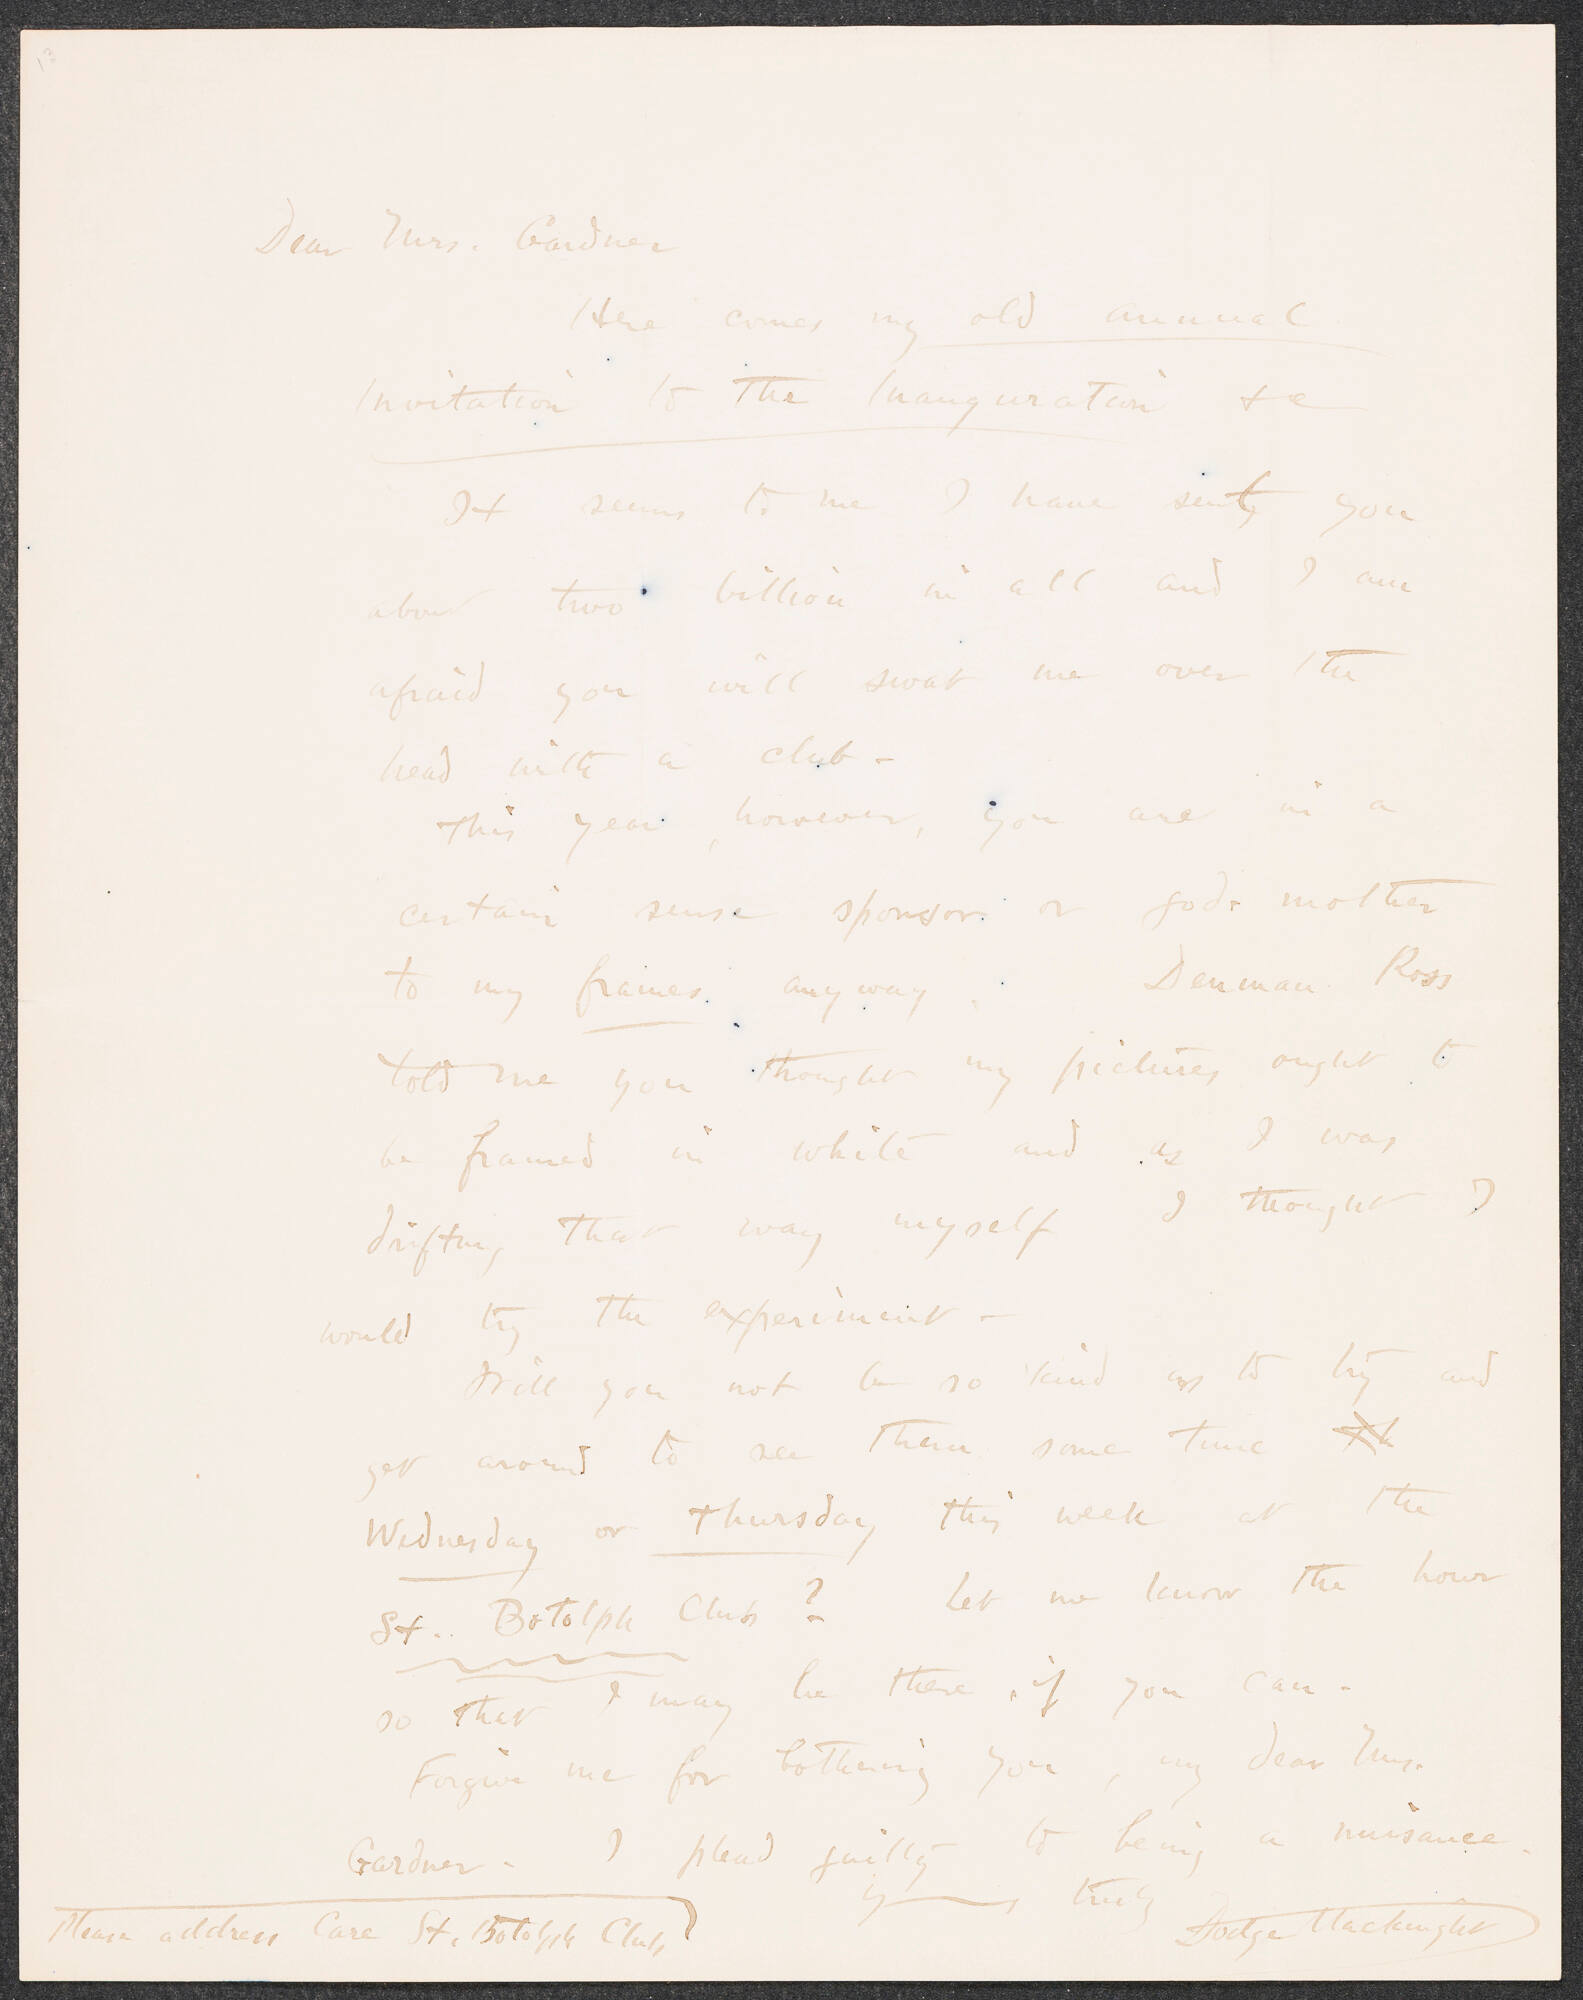 13
Dear Mrs. Gardner
Here comes my old annual
Invitation to the Inauguration &c
It seems to me I have sent you
about two billion in all and I am
afraid you will swat me over the
head with a club -
This year, however, you are in a
certain sense sponsor or god-mother
to my frames anyway. Denman Ross
told me you thought my pictures ought to
be framed in white and as I was
drifting that way myself I thought I
would try the experiment -
Will you not be so kind as to try and
get around to see them some time
Wednesday or Thursday this week at the
St. Botolph Club? Let me know the hour
so that I may be there, if you can -
Forgive me for bothering you, my dear Mrs.
Gardner - I plead guilty to being a nuisance.
Yours truly
Dodge Macknight
Please address Care St. Botolph Club